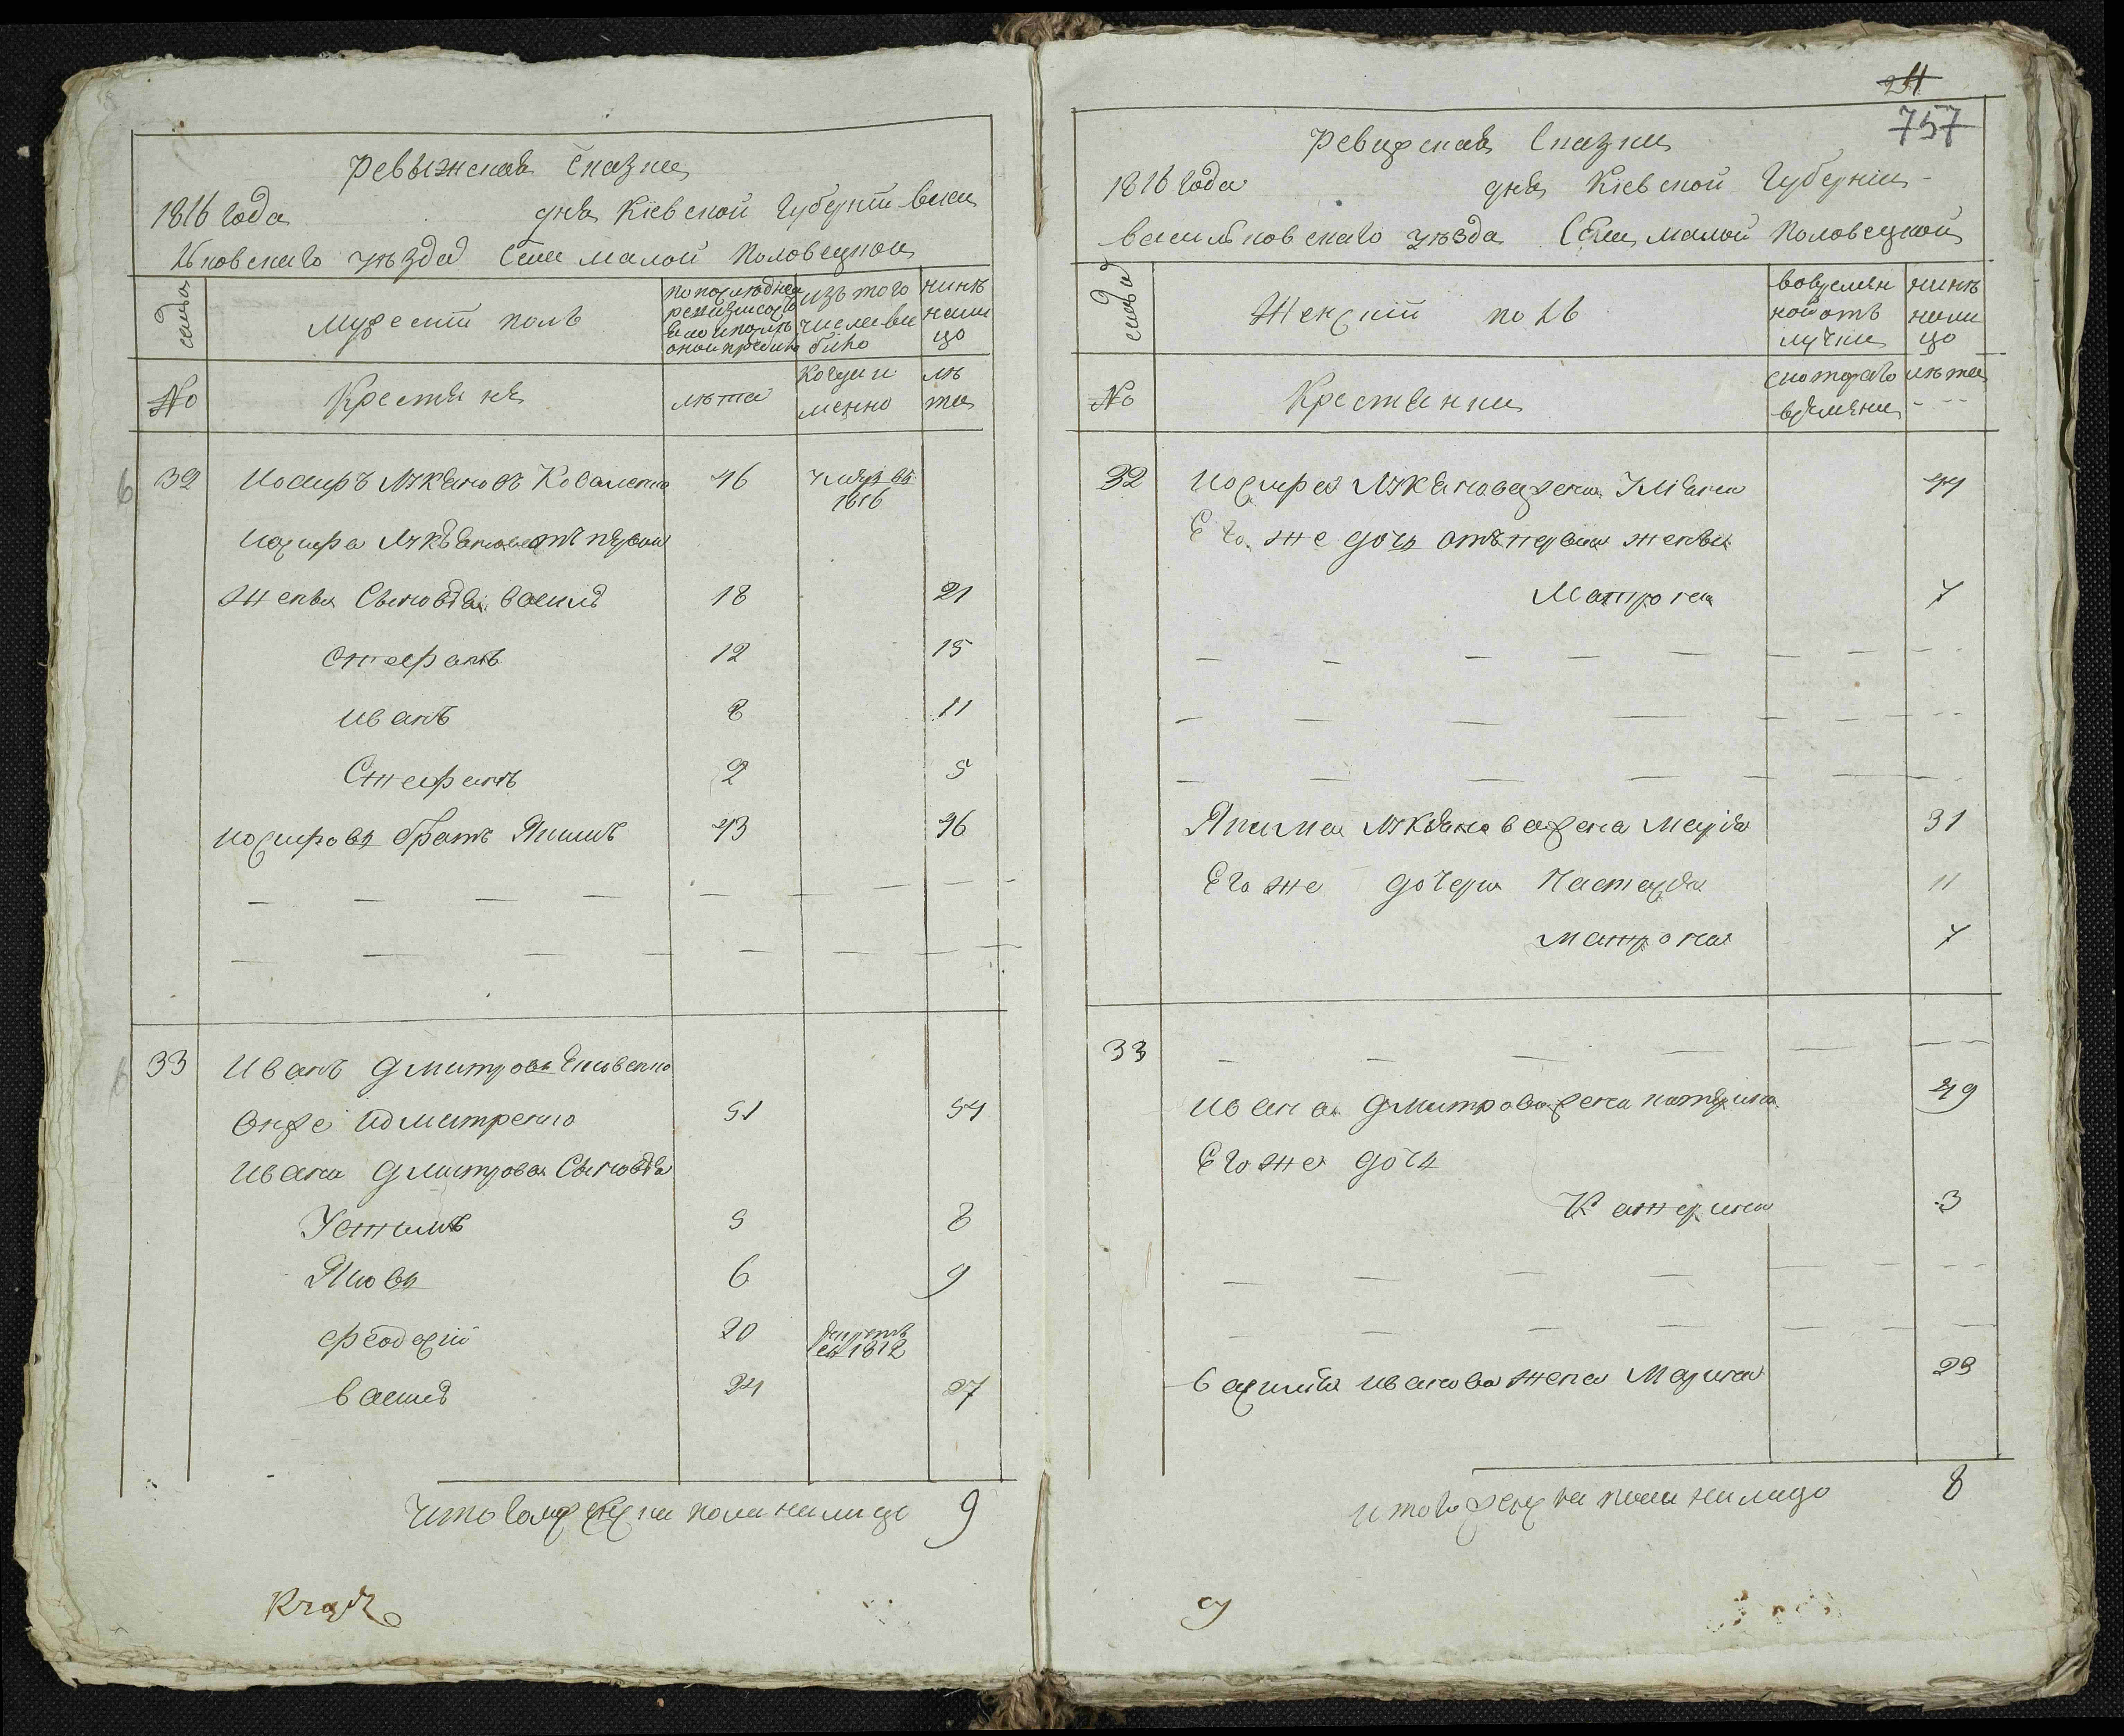 Ревыжская Сказка
1816 года дня Кіевской Губернїи Васи
льковскаго уѣзда Села малой Половецкой
семья
Мужескїй полъ
по последней ревизїи состояло и после оной прибыло
изъ того числа выбыло
нынѣ на лицо
№
Крестяне
лѣта
когда именно
лѣта
32 Иосифъ Лукяновъ Коваленко 46 умер въ 1816
Иосифа Лукьянова отъ первой
жены Сыновья василь 18 21
Стефанъ 12 15
иванъ 8 11
Стефанъ 2 5
иосифовъ братъ Якимъ 43 46
33 Иванъ Дмитровъ
51 54
Ивана Дмитрова Сыновья
Устимъ 5 8
Яковъ 6 9
феодосїй 20 1812
василь 24 27
Итого мужеска пола на лице 9
24
757
Ревизская Сказка
1816 года дня Кіевской Губернїи
васильковскаго уѣзда Села малой Половецкой
семья
Женскїй полъ
во временной отлучки
нынѣ на лицо
№
Крестянки
с которого времени
лѣта
32 иосифа Лукянова жена Улияна 44
Его же дочь отъ первой жены
Матрона 7
Якима Лукянова жена Марїя 31
Его же дочери Настасїя 11
матрона 7
33
Ивана Дмитрова жена катерина 49
Его же дочь
Катерина 3
василїя иванова жена Марина 23
итого женска пола на лицо 8